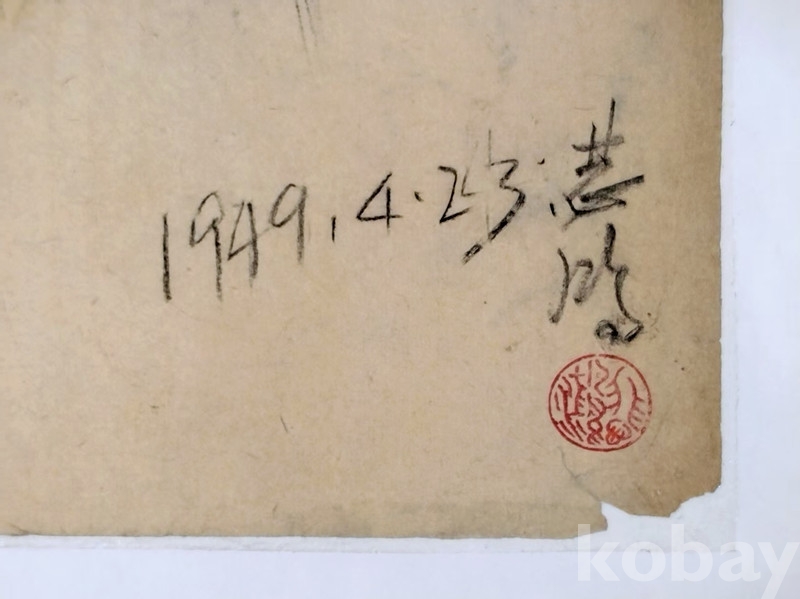 1949.4.23.悲
鸿
kobay